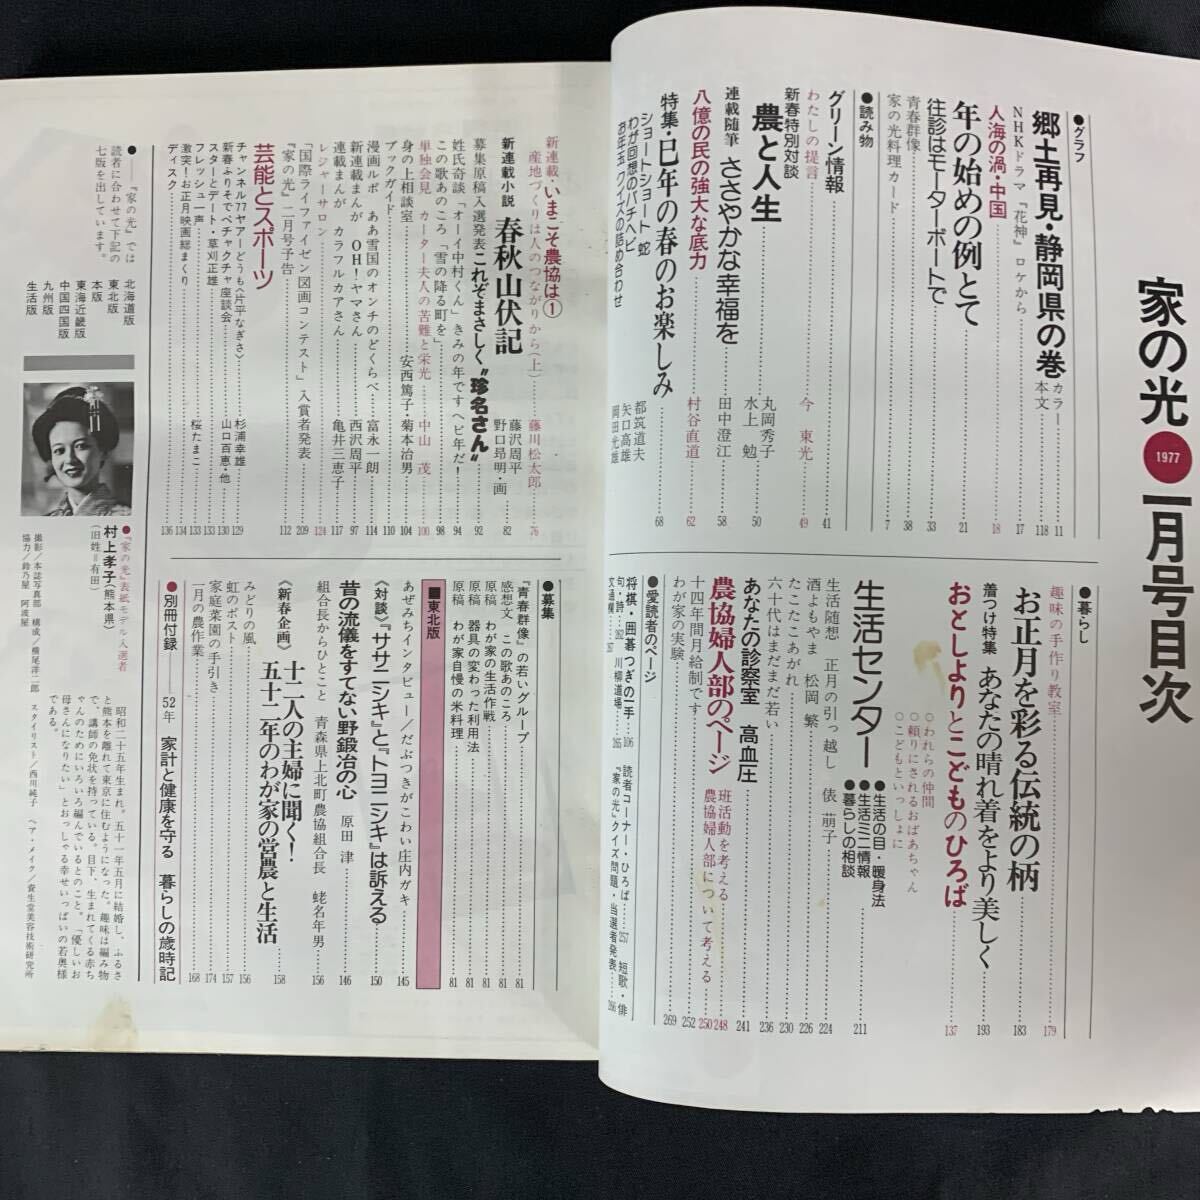 家の光 1977 一月号目次
●グラフ
郷土再見・静岡県の巻 カラー…11
本文…118
NHKドラマ『花神』ロケから…17
人海の渦・中国…18
年の始めの例とて…21
往診はモーターボートで…33
青春群像…38
家の光料理カード…7
●読み物
グリーン情報…41
わたしの提言 今 東光…49
新春特別対談
農と人生 丸岡秀子 水上 勉…50
連載随筆 ささやかな幸福を 田中澄江…58
八億の民の強大な底力 村谷直道…62
特集・巳年の春のお楽しみ…68
ショートショート 蛇 都筑道夫
わが回想のパチヘビ 矢口高雄
お年玉 ワイズの詰め合わせ 岡田光雄
●暮らし
趣味の手作り教室…179
お正月を彩る伝統の柄…183
着つけ特集 あなたの晴れ着をより美しく…193
おとしよりとこどものひろば…137
○われらの仲間
○頼りにされるおばあちゃん
○こどもといっしょに
生活センター…211
●生活の目・暖身法
●生活ミニ情報
●暮らしの相談
生活随想 正月の引っ越し 俵 萠子…224
酒よもやま 松岡 繁…226
たこたこあがれ…230
六十代はまだまだ若い…236
あなたの診察室 高血圧…241
農協婦人部のページ 班活動を考える…248
農協婦人部について考える…250
十四年間月給制です…252
わが家の実験…269
●愛読者のページ
将棋・囲碁つぎの一手…106 読者コーナー・ひろば…257 短歌・俳
句・詩…262 川柳道場…265 『家の光』クイズ問題・当選者発表…266
文通欄…267
新連載・いまこそ農協は①
産地づくりは人のつながりから(上) 藤川松太郎…76
新連載小説 春秋山伏記 藤沢周平 野口昂明・画…82
募集原稿入選発表 これぞまさしく〝珍名さん〟…92
姓氏奇談「オーイ中村くん」きみの年ですヘビ年だ!…94
この歌あのころ「雪の降る町を」…98
単独会見 カーター夫人の苦難と栄光 中山 茂…100
身の上相談室 安西篤子・菊本治男…104
ブックガイド…110
漫画ルポ ああ雪国のオンチのどくらべ 富永一朗…114
新連載まんが OH!ヤマさん 西沢周平…97
連載まんが カラフルカアさん 亀井三恵子…117
レジャーサロン…124
「国際ライファイゼン図画コンテスト」入賞者発表…209
『家の光』二月号予告…112
芸能とスポーツ
チャンネル77ヤアーどうも〈片平なぎさ〉 杉浦幸雄…129
新春ふりそでペチャクチャ座談会 山口百恵・他…130
スターとデート・草刈正雄…133
フレッシュ一声 桜たまこ…133
激突!お正月映画総まくり…134
ディスク…136
●――『家の光』では
読者に合わせて下記の
七版を出しています。
北海道版
東北版
本版
東海近畿版
中国四国版
九州版
生活版
●募集
『青春群像』の若いグループ…81
感想文 この歌あのころ…81
原稿 わが家の生活作戦…81
原稿 器具の変わった利用法…81
原稿 わが家自慢の米料理…81
■東北版
あぜみちインタビュー/だぶつきがこわい庄内ガキ…145
〈対談〉『ササニシキ』と『トヨニシキ』は訴える…150
昔の流儀をすてない野鍛治の心 原田 津…146
組合長からひとこと 青森県上北町農協組合長 蛯名年男…156
〈新春企画〉 十二人の主婦に聞く!
五十二年のわが家の営農と生活…158
みどりの風…156
虹のポスト…157
家庭菜園の手引き…174
一月の農作業…168
●別冊付録―― 52年 家計と健康を守る 暮らしの歳時記
●『家の光』表紙モデル入選者
村上孝子(熊本県)
(旧姓=有田)
昭和二十五年生まれ。五十一年五月に結婚し、ふるさ
と熊本を離れて東京に住むようになった。趣味は編み物
で、講師の免状を持っている。目下、生まれてくる赤ち
ゃんのためにいろいろ編んでいるとのこと。「優しいお
母さんになりたい」とおっしゃる幸せいっぱいの若奥様
である。
撮影/本誌写真部 構成/横尾洋二郎 スタイリスト/西川純子 ヘア・メイク/資生堂美容技術研究所
協力/鈴乃屋 阿波屋